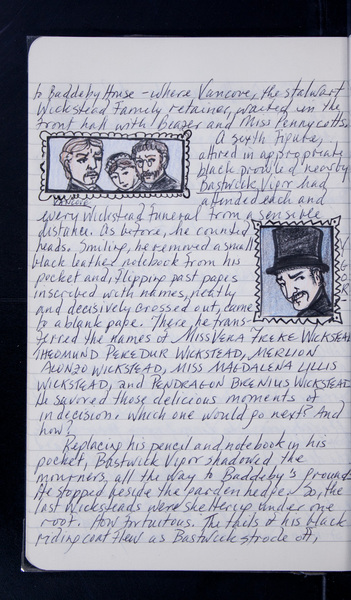 to Baddeby House - where Vancove, the stalwart
Wickstead Family retainer, waited in the
front hall with Beazer and Miss Pennycotts.
A sixth figure,
attired in appropriate
black prowled nearby
Bastwick Vipor had
attended each and
every Wickstead funeral from a sensible
distance. As before, he counted
heads. Smiling, he removed a small
black leather notebook from his
pocket and, flipping past pages
inscribed with names, neatly
and decisively crossed out, came
to a blank page. There, he trans-
ferred the names of MISS VERA WICKSTEAD
WICKSTEAD, MERLION
WICKSTEAD, MISS MAGDALENA LILLIS
WICKSTEAD, and PENDRAGON WICKSTEAD
He savored those delicious moments of
indecision. Which one would go next? And
how?
Replacing his pencil and notebook in his
pocket, Bastwick Vipor shadowed the
mourners, all the way to Baddeby's grounds
He stopped beside the garden hedge. So, the
last Wicksteads were sheltering under one
roof. How fortuitous. The tails of his black
riding coat flew as Bastwick strode off,